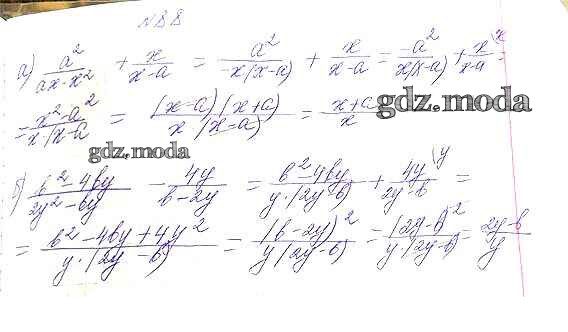 №88
а) a²/(ax-x²) + x/(x-a) = a²/(-x(x-a)) + x/(x-a) = -a²/(x(x-a)) + x/(x-a) \x =
= (x²-a²)/(x(x-a)) = (x-a)(x+a)/(x(x-a)) = (x+a)/x
gdz.moda
gdz.moda
б) (b²-4by)/(2y²-by) - 4y/(b-2y) = (b²-4by)/(y·(2y-b)) + 4y/(2y-b) \y =
= (b²-4by+4y²)/(y·(2y-b)) = (b-2y)²/(y(2y-b)) = (2y-b)²/(y·(2y-b)) = (2y-b)/y